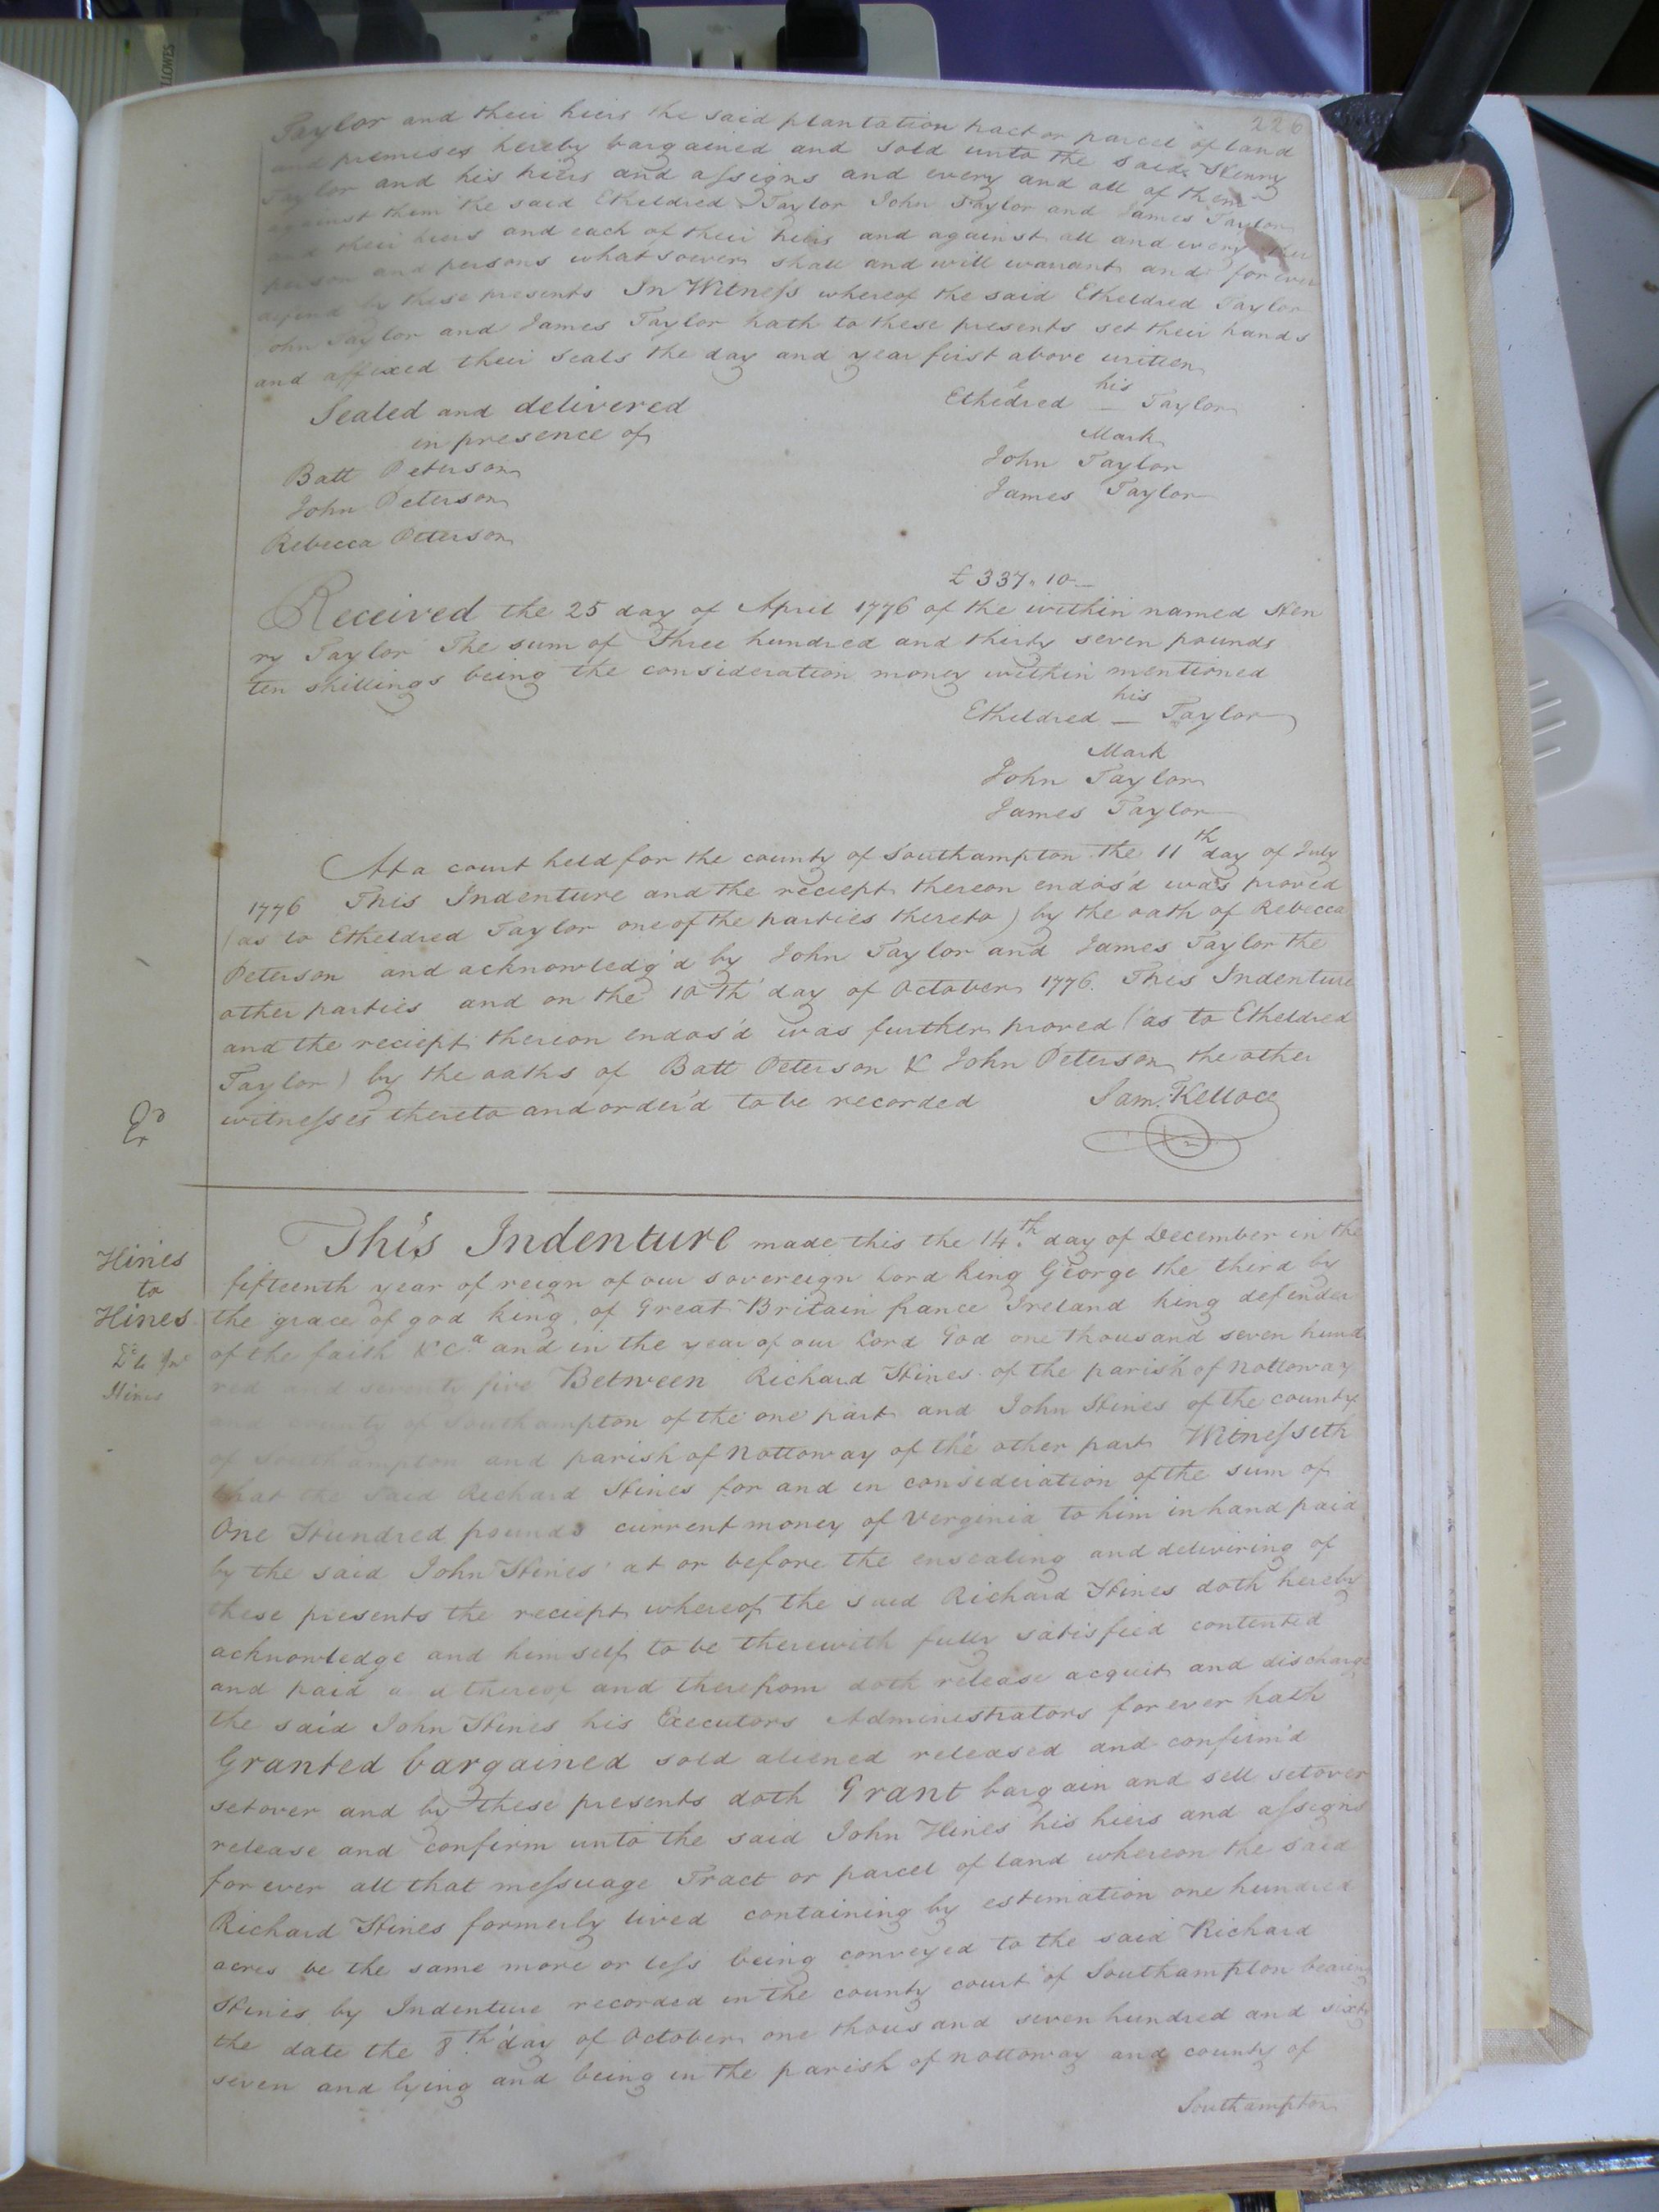 226
Taylor and their hiers the said plantation tract or parcel of land
and premises hereby bargained and sold unto the said Henny
Taylor and his hiers and assigns and every and all of them
against them the said Etheldred Taylor John Taylor and James Taylor
and their hiers and each of their hiers and against all and every other
person and persons whatsoever shall and will warrant and for ever
defend by these presents In Witness whereof the said Etheldred Taylor
John Taylor and James Taylor hath to these presents set their hands
and affixed their seals the day and year first above written
Sealed and delivered
in presence of
Batt Peterson
John Peterson
Rebecca Peterson
his
Etheldred — Taylor
Mark
John Taylor
James Taylor
£ 337.10—
Received the 25 day of April 1776 of the within named Hen
ry Taylor The sum of Three hundred and thirty seven pounds
ten shillings being the consideration money within mentioned
his
Etheldred — Taylor
Mark
John Taylor
James Taylor
At a court held for the county of Southampton the 11th day of July
1776 This Indenture and the reciept thereon endos'd was proved
(as to Etheldred Taylor one of the parties thereto) by the oath of Rebecca
Peterson and acknowledg'd by John Taylor and James Taylor the
other parties and on the 10th day of October 1776. This Indenture
and the reciept thereon endos'd was further proved (as to Etheldred
Taylor) by the oaths of Batt Peterson & John Peterson the other
witnesses thereto and order'd to be recorded
Sam. Kelloce
Ex
Hines
to
Hines
Hines
This Indenture made this the 14th day of December in the
fifteenth year of reign of our sovereign Lord King George the third by
the grace of god king of Great Britain france Ireland king defender
of the faith &c.a and in the year of our Lord God one thousand seven hund
red and seventy five Between Richard Hines of the parish of Nottoway
and county of Southampton of the one part and John Hines of the county
of Southampton and parish of Nottoway of the other part Witnesseth
that the said Richard Hines for and in consideration of the sum of
One Hundred pounds current money of Verginia to him in hand paid
by the said John Hines at or before the ensealing and delivering of
these presents the reciept whereof the said Richard Hines doth hereby
acknowledge and him self to be therewith fully satisfied contented
and paid a d thereof and therefrom doth release acquit and discharge
the said John Hines his Executors Administrators for ever hath
Granted bargained sold aliened released and confirm'd
setover and by these presents doth Grant bargain and sell setover
release and confirm unto the said John Hines his hiers and assigns
for ever all that messuage Tract or parcel of land whereon the said
Richard Hines formerly lived containing by estimation one hundred
acres be the same more or less being conveyed to the said Richard
Hines by Indenture recorded in the county court of Southampton bearing
the date the 8th day of October one thousand seven hundred and sixty
seven and lying and being in the parish of Nottoway and county of
Southampton